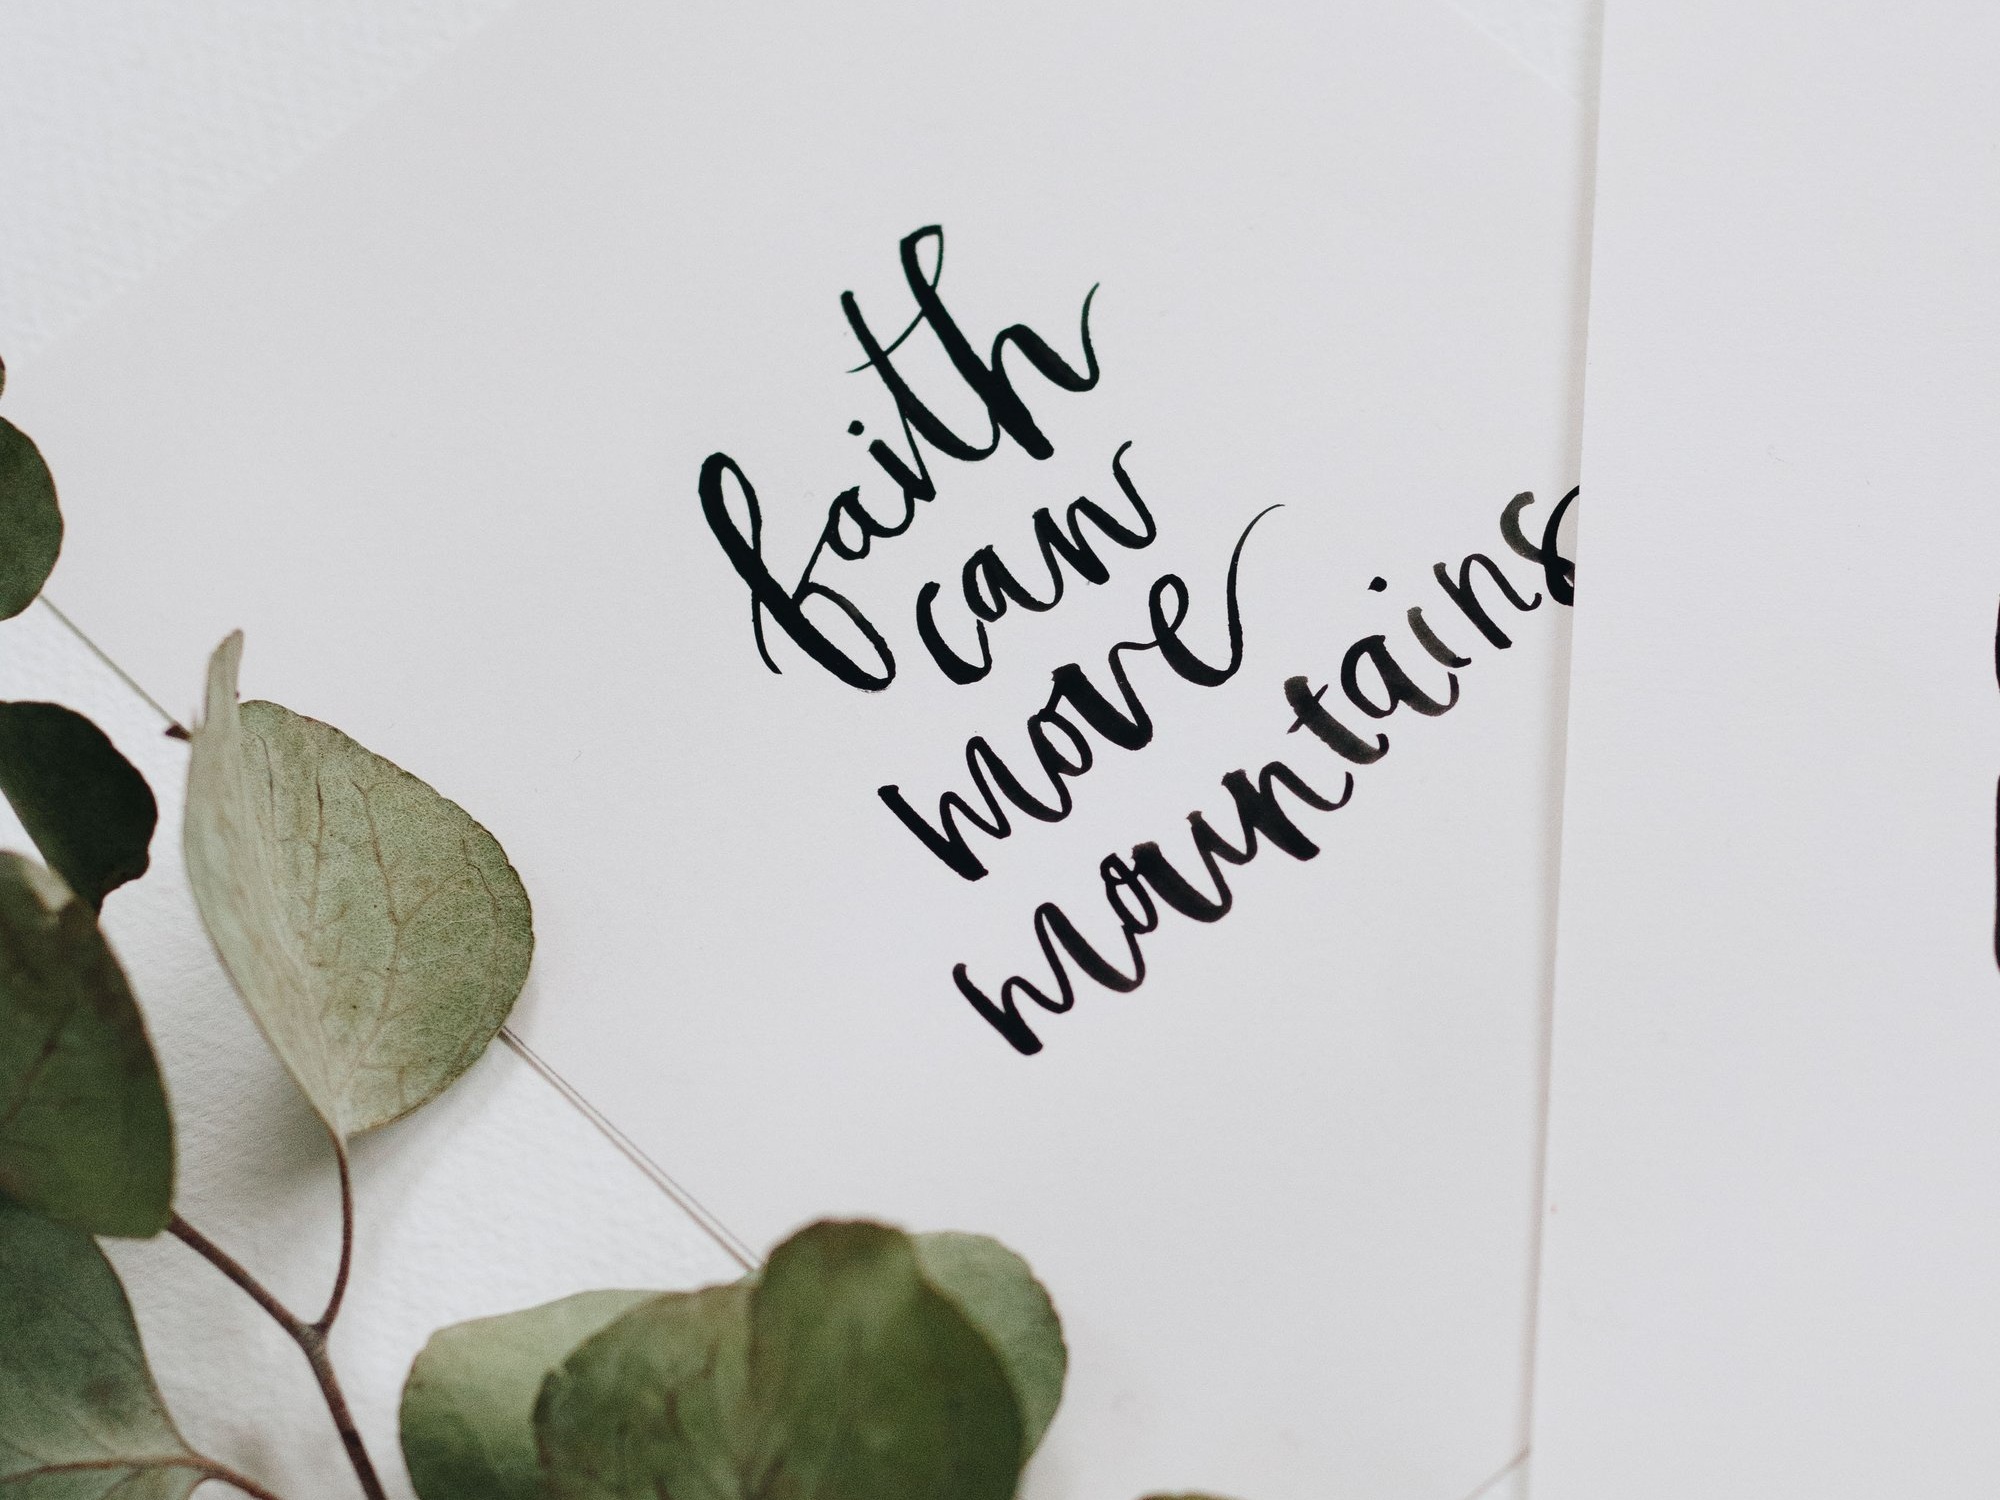 faith
can
move
mountains